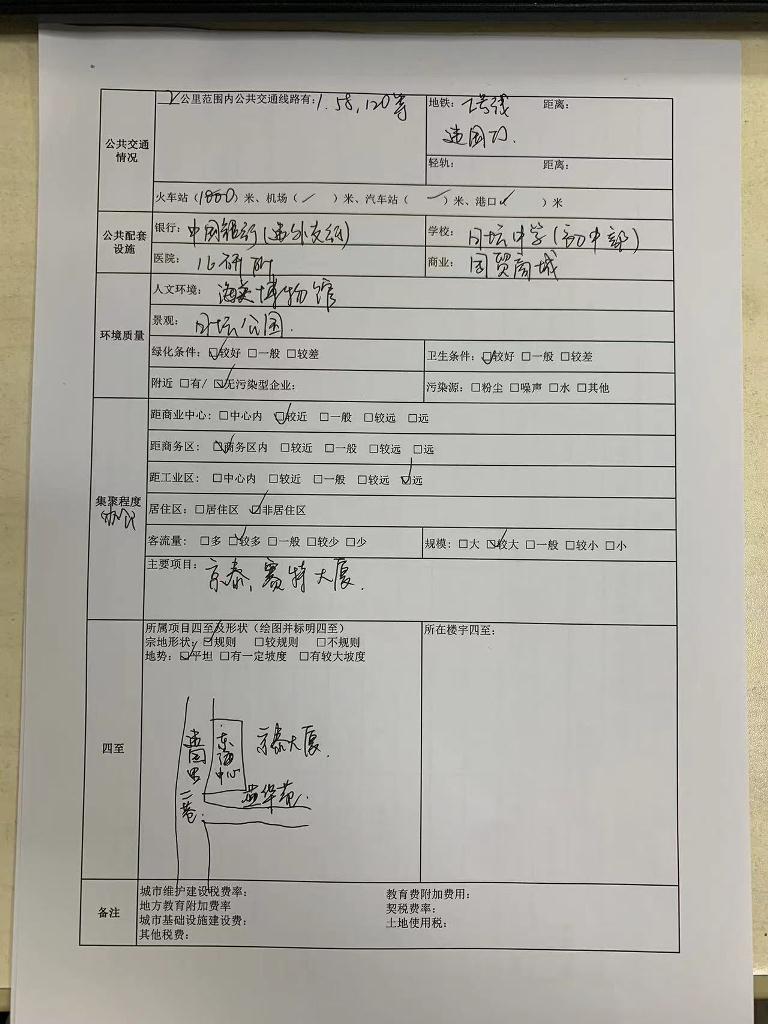 2公里范围内公共交通线路有:1.58,120等
地铁: 2号线 距离:
建国门.
公共交通
情况
轻轨: 距离:
火车站(1800)米、机场( ⁄ )米、汽车站( ⁄ )米、港口 ⁄ )米
公共配套
设施
银行: 中国银行(建外支行) 学校: 日坛中学(初中部)
医院: 儿研所 商业: 国贸商城
环境质量
人文环境: 海关博物馆
景观: 日坛公园.
绿化条件: ☑较好 □一般 □较差 卫生条件: ☑较好 □一般 □较差
附近 □有/ ☑无污染型企业: 污染源: □粉尘 □噪声 □水 □其他
集聚程度
距商业中心: □中心内 ☑较近 □一般 □较远 □远
距商务区: ☑商务区内 □较近 □一般 □较远 □远
距工业区: □中心内 □较近 □一般 □较远 ☑远
居住区: □居住区 ☑非居住区
客流量: □多 ☑较多 □一般 □较少 □少 规模: □大 ☑较大 □一般 □较小 □小
主要项目: 京泰、赛特大厦.
四至
所属项目四至及形状(绘图并标明四至) 所在楼宇四至:
宗地形状: ☑规则 □较规则 □不规则
地势: ☑平坦 □有一定坡度 □有较大坡度
建国里二巷.
东海中心
京泰大厦.
备注
城市维护建设税费率: 教育费附加费用:
地方教育附加费率 契税费率:
城市基础设施建设费: 土地使用税:
其他税费: